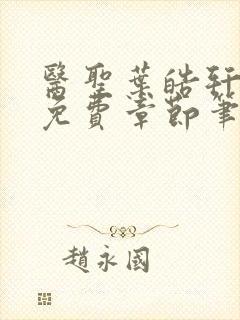 醫聖葉皓軒
免費章節筆
趙永國